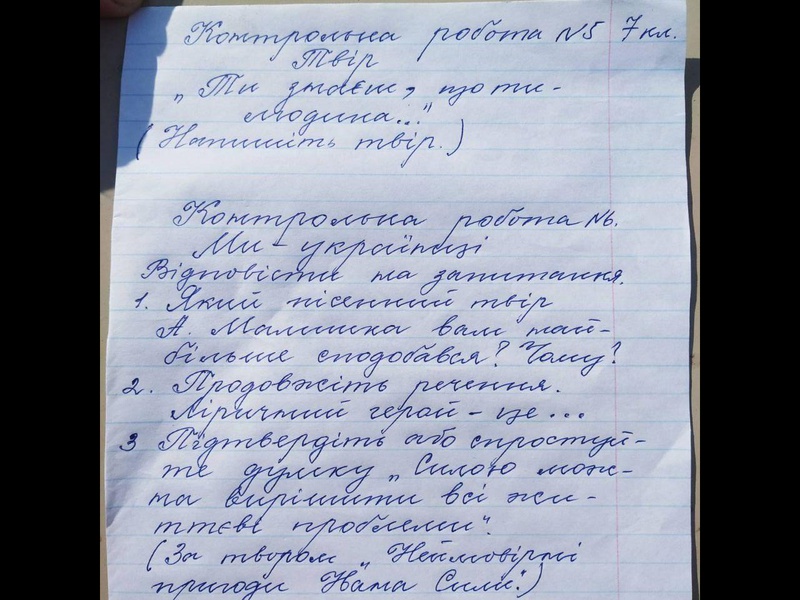 Контрольна робота №5 7 кл.
Твір
„Ти знаєш, що ти -
людина..."
(Напишіть твір.)
Контрольна робота №6.
Ми - українці
Відповісти на запитання.
1. Який пісенний твір
А. Малишка вам най-
більше сподобався? Чому?
2. Продовжіть речення.
Ліричний герой - це ...
3 Підтвердіть або спростуй-
те думку „Силою мож-
на вирішити всі жи-
ттєві проблеми".
(За твором „Неймовірні
пригоди Івана Сили".)